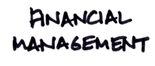 FINANCIAL
MANAGEMENT